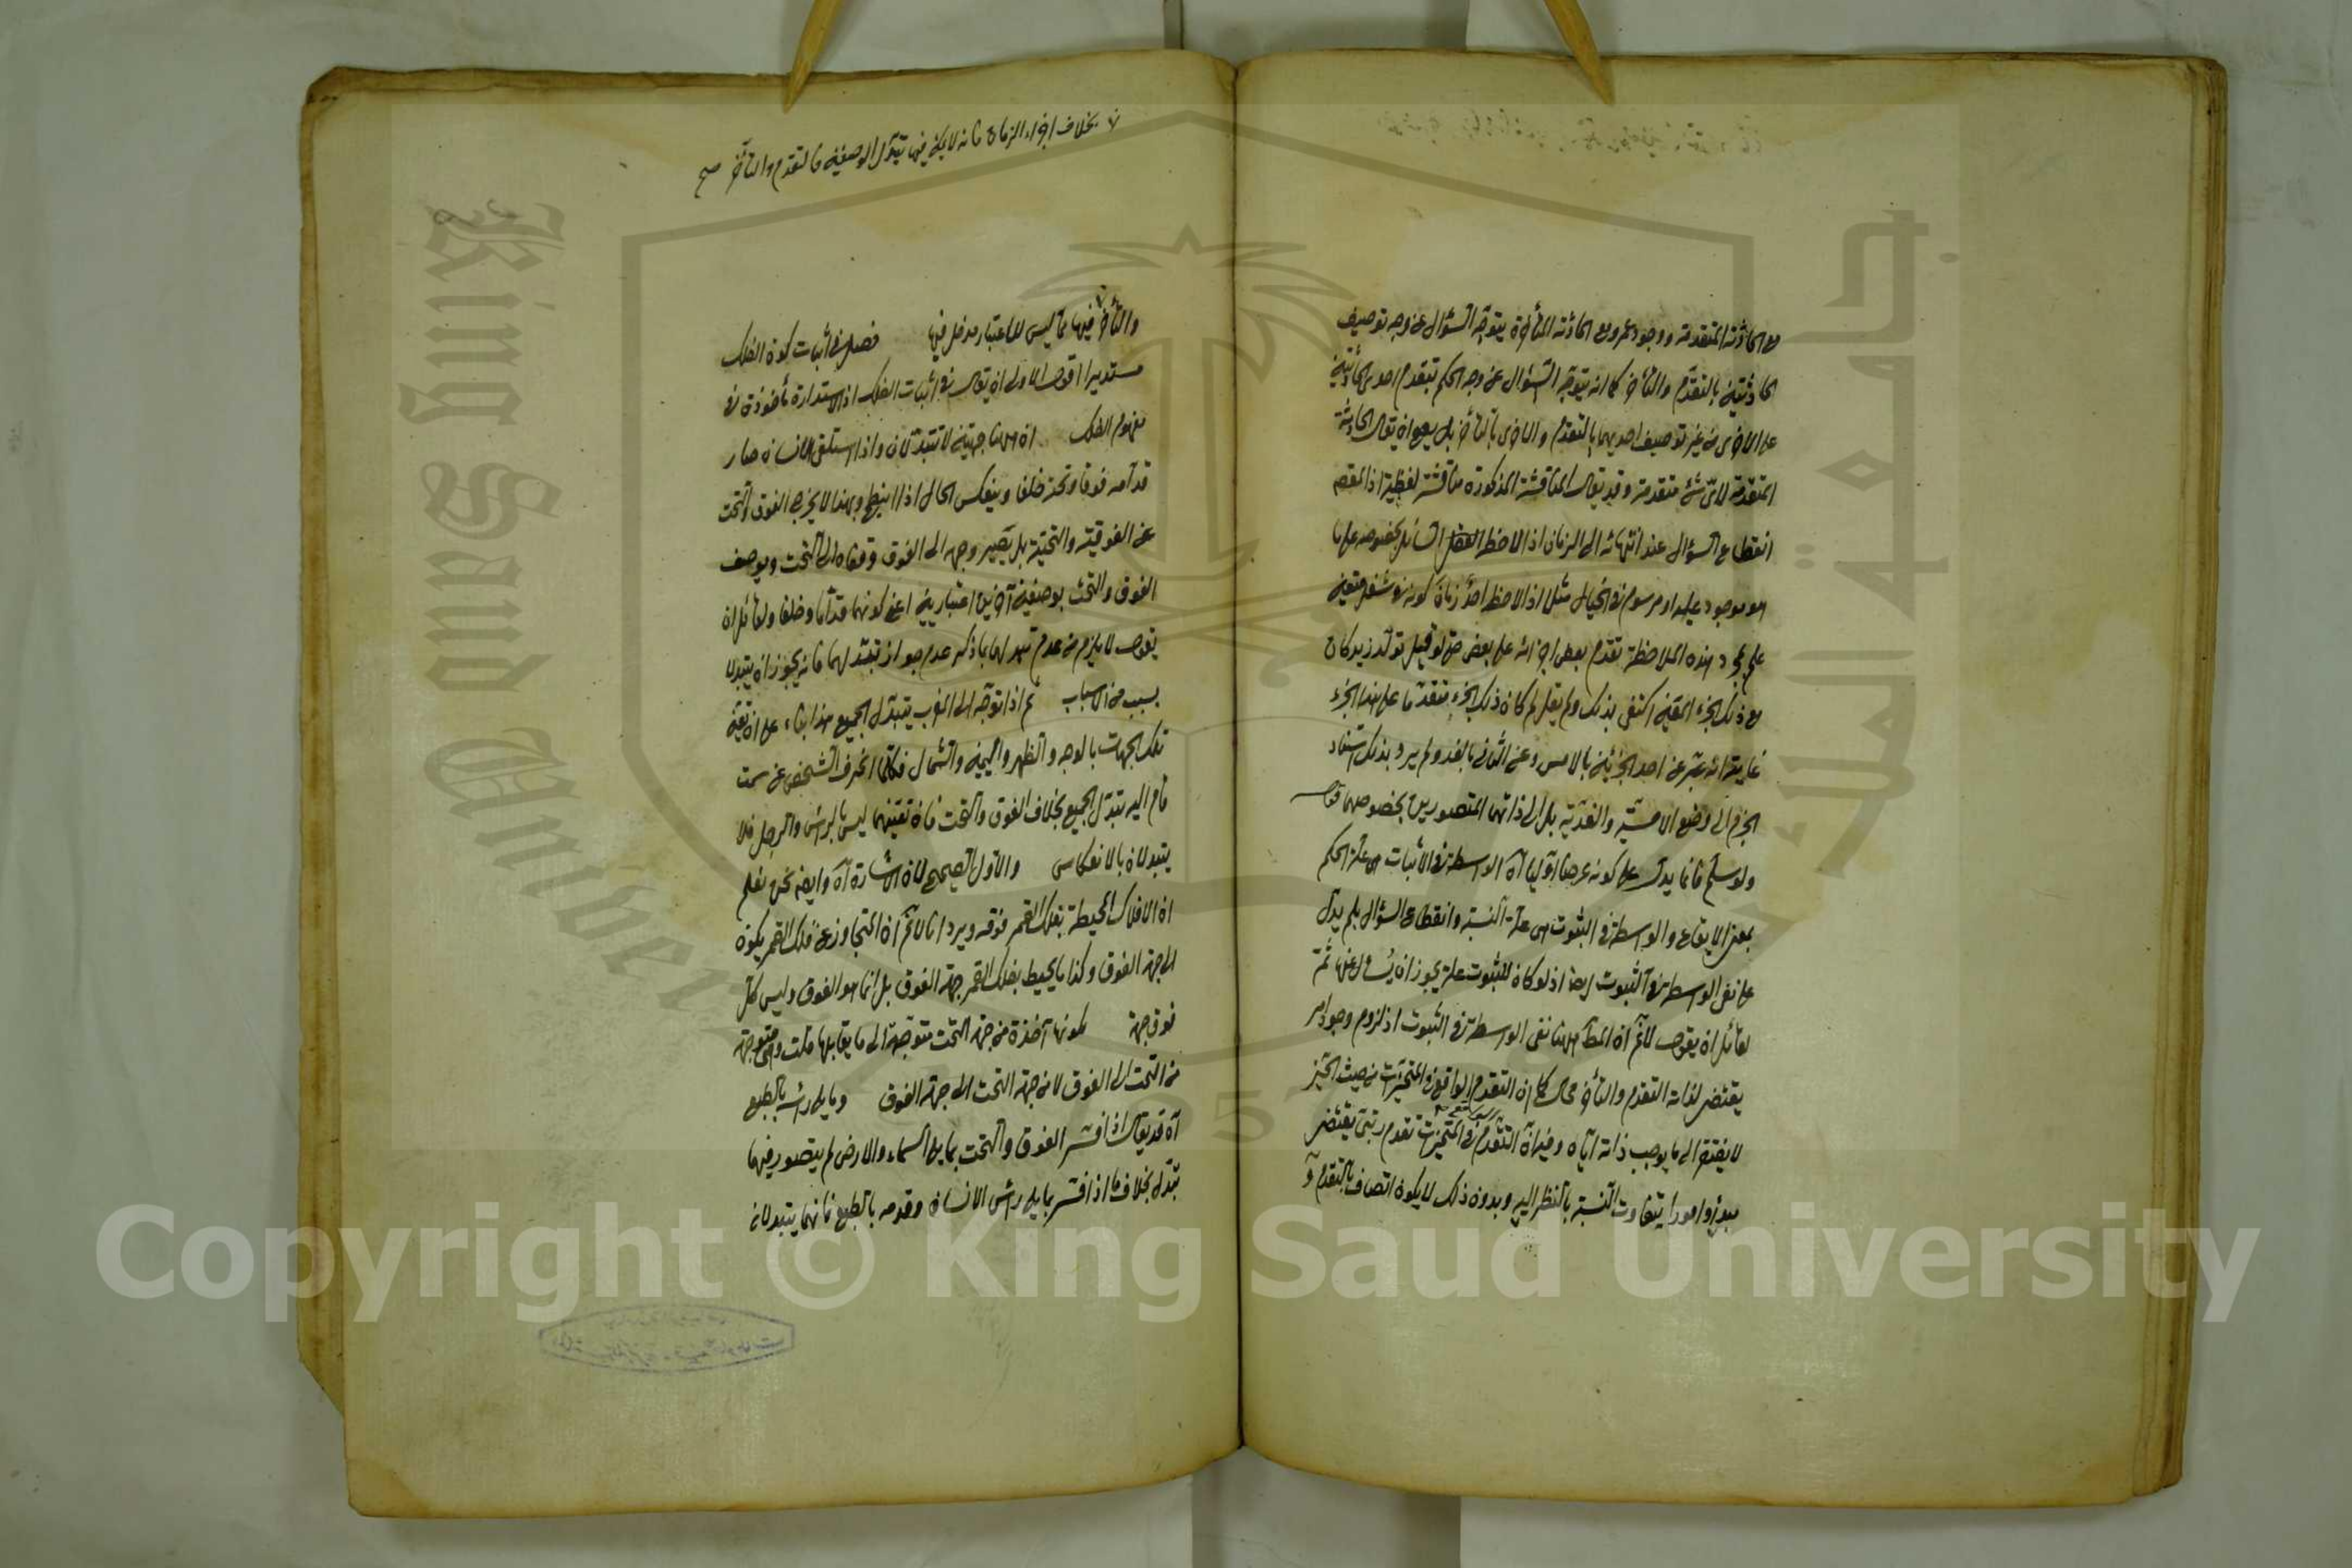 مع الحادثة المتقدمة ووجود عمرو مع الحادثة المتأخرة يتوجه السؤال عن وجه توصيف
الحادثتين بالتقدم والتأخر كما انه يتوجه السؤال عن وجه الحكم بتقدم احدى الحادثتين
على الاخرى من غير توصيف احديهما بالتقدم والاخرى بالتأخر بل يصح ان يقال الحادثة
المتقدمة لاى شئ متقدمة وقد يقال المناقشة المذكورة مناقشة لفظية اذ المقصود
انقطاع السؤال عند انتهائه الى الزمان اذا لاحظ العقل السائل بخصوصه على ما
هو موجود عليه او مرسوم فى الخيال مثلا اذا لاحظ احد زمان كونه فى شغل معين
علم بمجرد هذه الملاحظة تقدم بعض اجزائه على بعض حتى لو قيل تولد زيد كان
مع ذلك الجزء المعين اكتفى بذلك ولم يقل لم كان ذلك الجزء متقدما على هذا الجزء
غايته انه عبر عن احد الجزئين بالامس وعن الثانى بالغد ولم يرد بذلك استناد
الجزم الى وضع الامسية والغدية بل الى ذاتهما المتصورين بخصوصهما قوله
ولو سلم فانما يدل على كونه عرضا اوليا آه الواسطة فى الاثبات هى علة الحكم
بمعنى الايقاع والواسطة فى الثبوت هى علة النسبة وانقطاع السؤال بلم يدل
على نفى الواسطة فى الثبوت ايضا اذ لو كان للثبوت علة يجوز ان يسئل عنها ثمة
لقائل ان يقول لا نم ان المط ههنا نفى الواسطة فى الثبوت اذ لزوم وجود امر
يقتضى لذاته التقدم والتأخر محال كما ان التقدم الواقع فى المتحيزات من حيث التحيز
لا يفتقر الى ما يوجب ذاته اياه وفيه ان التقدم فى المتحيزات تقدم رتبى يقتضى
مبدأ وامورا يتفاوت النسبة بالنظر اليه وبدون ذلك لا يكون اتصاف بالتقدم و
بخلاف اجزاء الزمان فانه لا يمكن فيها تبدل الوصفين فالتقدم والتأخر صح
والتأخر فيها مما ليس للاعتبار مدخل فيها فصل فى اثبات كون الفلك
مستديرا اقول الاولى ان يقال فى اثبات الفلك اذ الاستدارة مأخوذة فى
مفهوم الفلك ان ههنا جهتين لا تتبدلان واذا استلقى الانسان صار
قدامه فوقا وتحته خلفا وينعكس الحال اذا انبطح وبهذا لا يخرج الفوق والتحت
عن الفوقية والتحتية بل يصير وجهه الى الفوق وقفاه الى التحت ويوصف
الفوق والتحت بوصفين آخرين اعتباريين اعنى كونهما قداما وخلفا ولقائل ان
يقول لا يلزم من عدم تبدلهما بما ذكر عدم جواز تبدلهما فانه يجوز ان يتبدلا
بسبب من الاسباب ثم اذا توجه الى المغرب يتبدل الجميع هذا بناء على ان تعين
تلك الجهات بالوجه والظهر واليمين والشمال فكلما انحرف الشخص عن سمت
قام اليه يتبدل الجميع بخلاف الفوق والتحت فان تعينهما ليس بالرأس والرجل فلا
يتبدلان بالانعكاس والاول الصحيح لان الاشارة آه وايضا نحن نعلم
ان الافلاك المحيطة بفلك القمر فوقه ويرد انا لا نم ان المتجاوز عن فلك القمر يكون
الى جهة الفوق وكذا ما يحيط بفلك القمر جهة الفوق بل انما هو الفوق وليس كل
فوق جهة لكونها آخذة من جهة التحت متوجهة الى ما يقابلها قلت وهى متوجهة
من التحت الى الفوق لا من جهة التحت الى جهة الفوق وما يلى رأسه بالطبع
آه قد يقال اذا فسر الفوق والتحت بما يلى السماء والارض لم يتصور فيهما
تبدل بخلاف ما اذا فسر بما يلى رأس الانسان وقدمه بالطبع فانهما يتبدلان
King Saud University
Copyright © King Saud University
1957